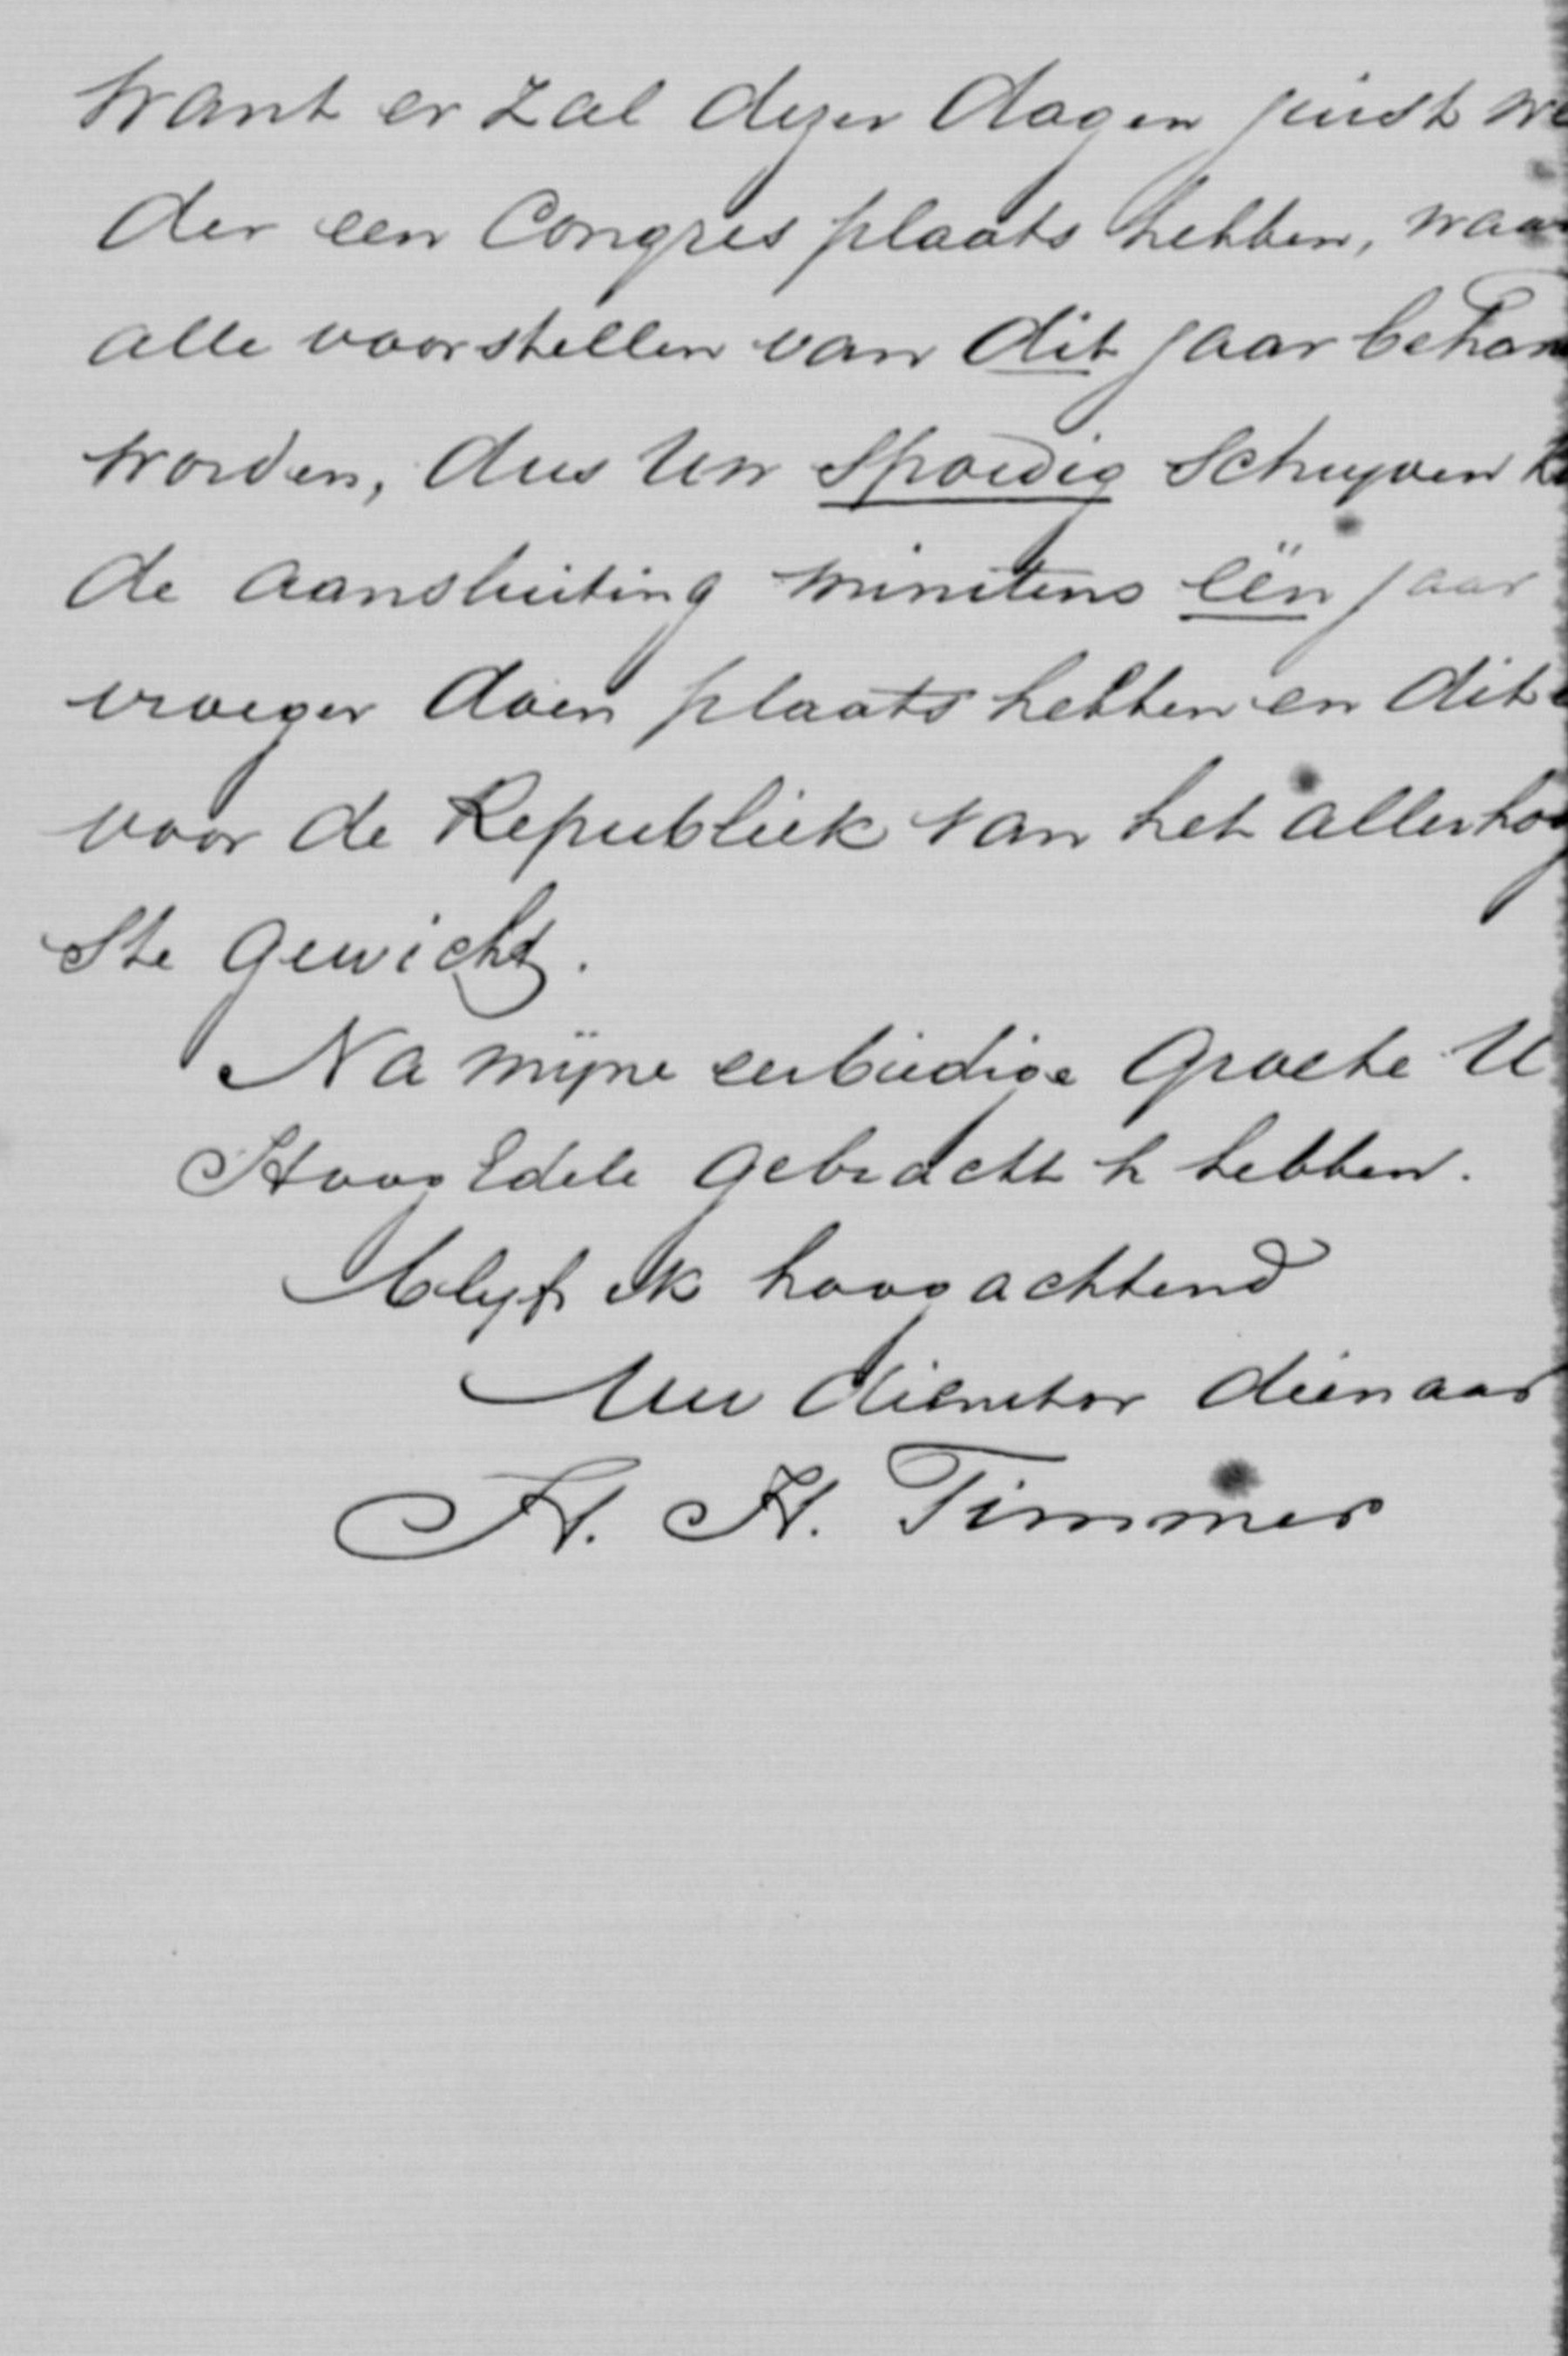 want er zal dezer dagen juist we
der een Congres plaats hebben, waar
alle voorstellen van dit jaar behan
worden, dus Uw spoedig schryven k
de aansluiting minstens ëën jaar
vroeger doen plaats hebben en dit
voor de Republiek van het allerhoog
ste gewicht.
Na mÿne eerbiedige Groete U
HoogEdele gebracht te hebben.
blyf ik hoogachtend
Uw dienstw dienaar
H. H. Timmer